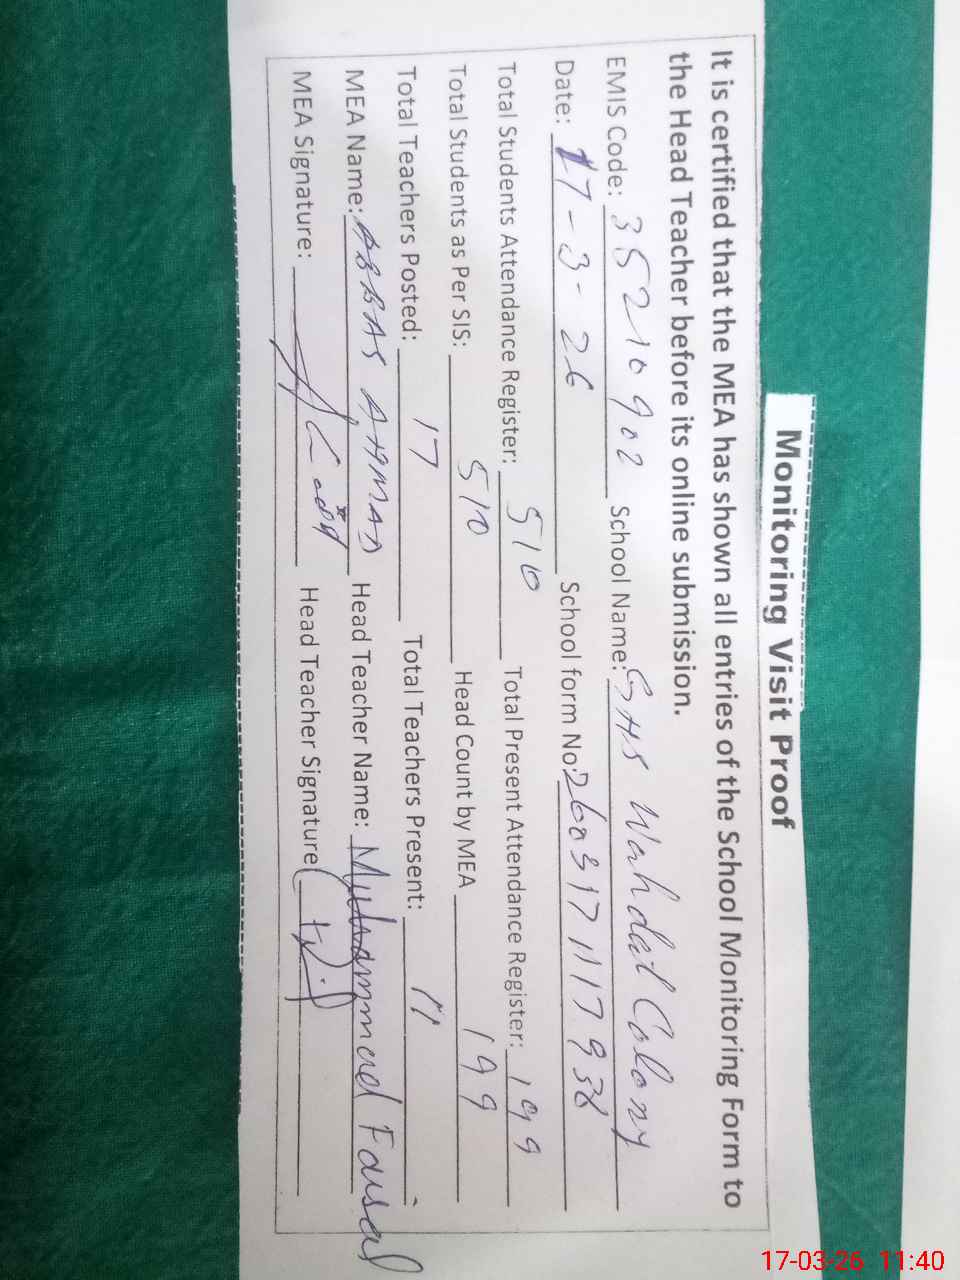 Monitoring Visit Proof
It is certified that the MEA has shown all entries of the School Monitoring Form to
the Head Teacher before its online submission.
EMIS Code: 35210902 School Name: GHS Wahdat Colony
Date: 17-3-26 School form No: 2603171117938
Total Students Attendance Register: 510 Total Present Attendance Register: 199
Total Students as Per SIS: 510 Head Count by MEA 199
Total Teachers Posted: 17 Total Teachers Present: 11
MEA Name: ABBAS AHMAD Head Teacher Name: Muhammad Faisal
MEA Signature: Head Teacher Signature
17-03-26 11:40